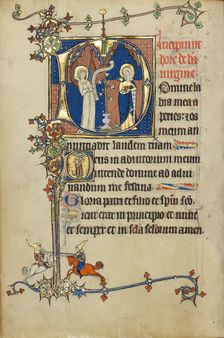 Incipiunt
hore de be
uirgine
Domine la
bia mea a
peries: et os
meum an
nuntiabit laudem tuam
Deus in adiutorium meum
intende domine ad adiu
uandum me festina
Gloria patri et filio et spiritui sco
sicut erat in principio et nunc
et semper et in secula seculorum amen